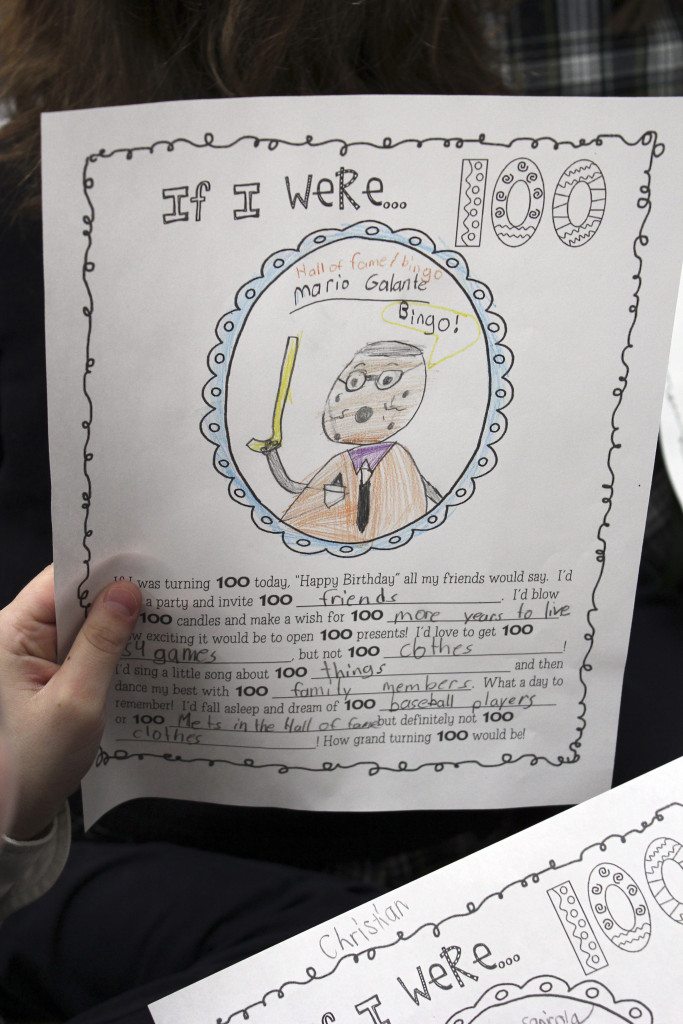 If I WeRe... 100
Hall of fame/bingo
Mario Galante
Bingo!
If I was turning 100 today, "Happy Birthday" all my friends would say. I'd
a party and invite 100 friends. I'd blow
100 candles and make a wish for 100 more years to live
exciting it would be to open 100 presents! I'd love to get 100
games, but not 100 clothes!
I'd sing a little song about 100 things and then
dance my best with 100 family members. What a day to
remember! I'd fall asleep and dream of 100 baseball players
or 100 Mets in the Hall of fame but definitely not 100
clothes! How grand turning 100 would be!
Christian
If I WeRe... 100